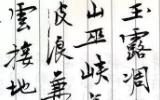 玉露凋
山巫峽
波浪兼
雲接地